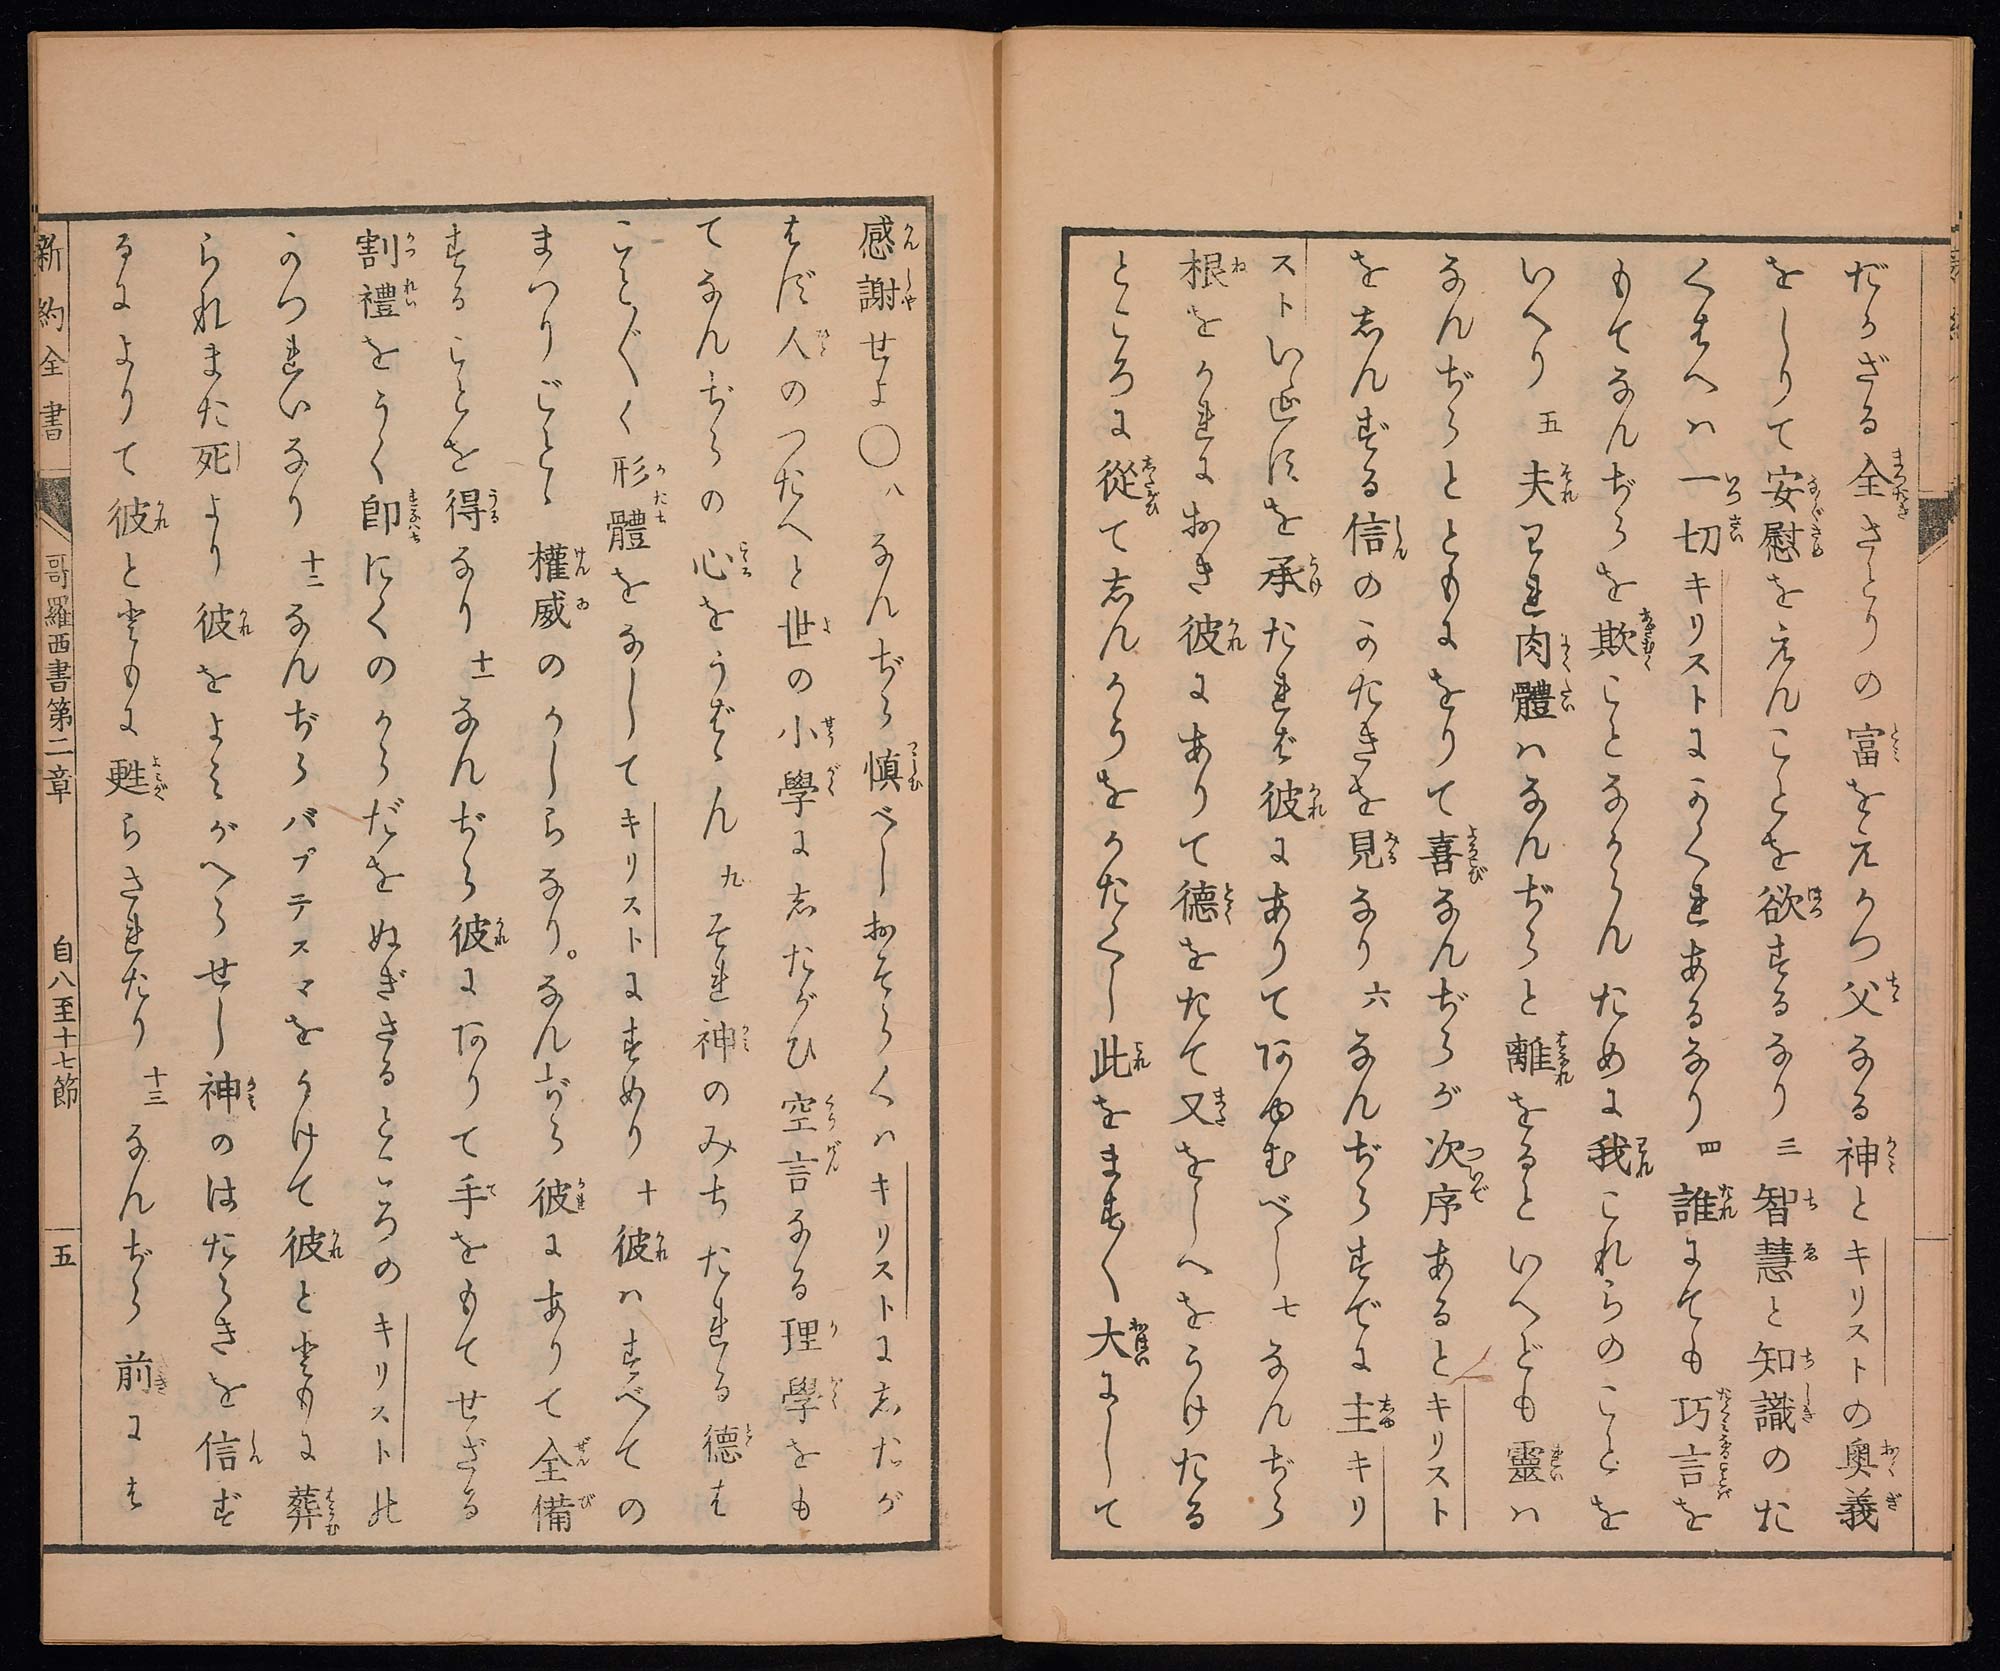 だかざる全さとりの富を元かつ父なる神とキリストの奥義
をしりて安慰をえんことを欲するなり 三 智慧と知識のた
くはへハ一切キリストにかくれあるなり 四 誰にても巧言を
もてなんぢらを欺ことなからんために我これらのことを
いへり 五 夫われ肉體ハなんぢらと離をるといへども靈ハ
なんぢらとともにをりて喜なんぢらが次序あるとキリスト
を志んずる信のかたきを見なり 六 なんぢらすでに主キリ
ストいエスを承たれば彼にありてあゆむべし 七 なんぢら
根をかれにおき彼にありて德をたて又をしへをうけたる
ところに從て志んかうをかたくし此をます〱大にして
感謝せよ〇 八 なんぢら慎べしおそらくハキリストに志たが
はず人のつたへと世の小學に志たがひ空言なる理學をも
てなんぢらの心をうばゝん 九 それ神のみちたれる德は
こと〲く形體をなしてキリストにすめり 十 彼ハすべての
まつりごとゝ權威のかしらなり。なんぢら彼にありて全備
することを得なり 十一 なんぢら彼にありて手をもてせざる
割禮をうく即にくのからだをぬぎさるところのキリストの
かつれいなり 十二 なんぢらバプテスマをうけて彼と共に葬
られまた死より彼をよみがへらせし神のはたらきを信ず
るによりて彼と共に甦らされたり 十三 なんぢら前には
新約全書
哥羅西書第二章
自八至十七節
五